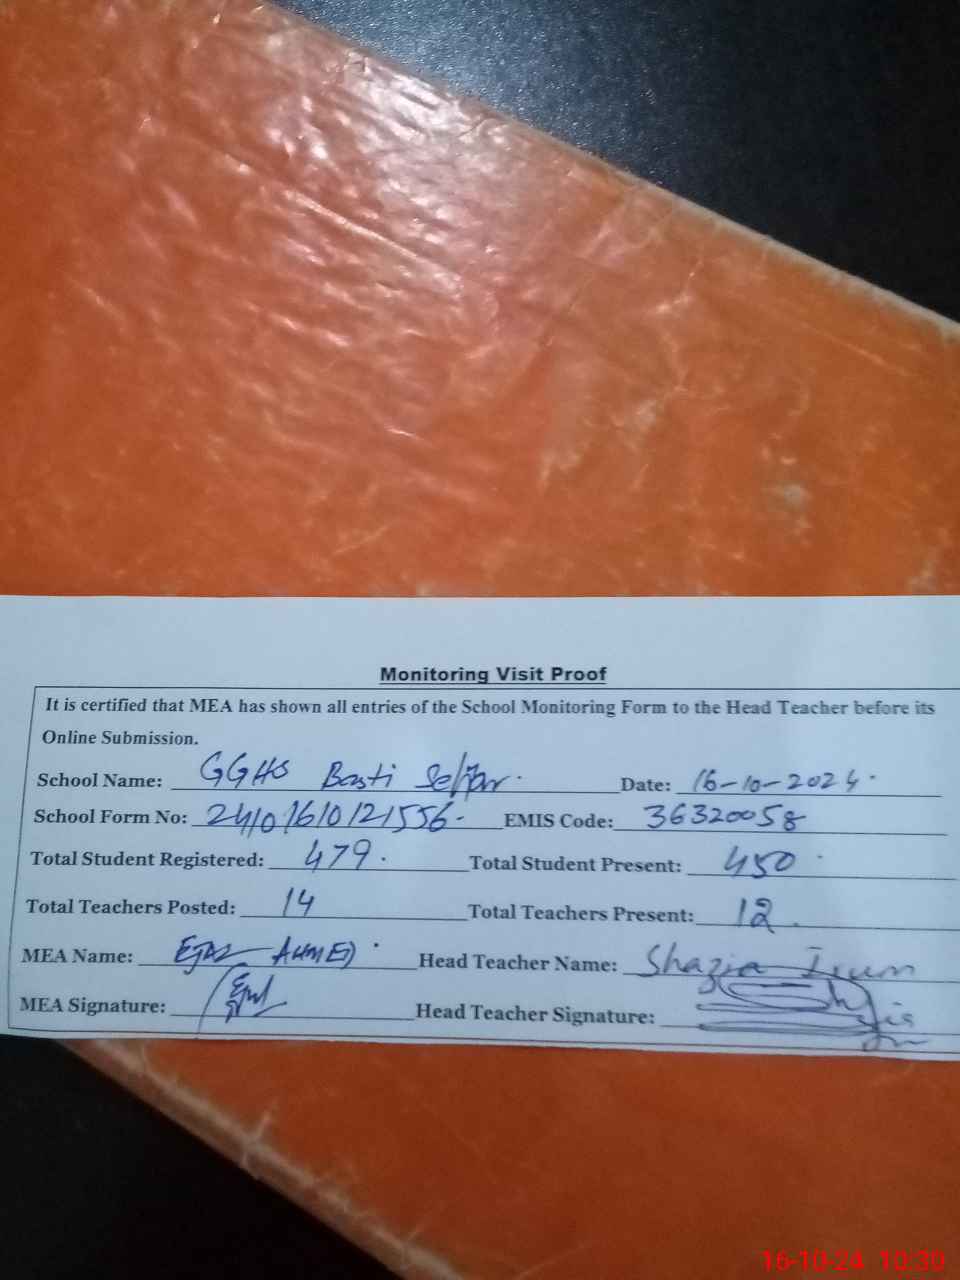 Monitoring Visit Proof
It is certified that MEA has shown all entries of the School Monitoring Form to the Head Teacher before its
Online Submission.
School Name: GGHS Basti Date: 16-10-2024
School Form No: EMIS Code: 36320058
Total Student Registered: 479 Total Student Present: 450
Total Teachers Posted: 14 Total Teachers Present: 12
MEA Name: EJAZ AHMED Head Teacher Name: Shazia Irum
MEA Signature: Head Teacher Signature:
16-10-24 10:30